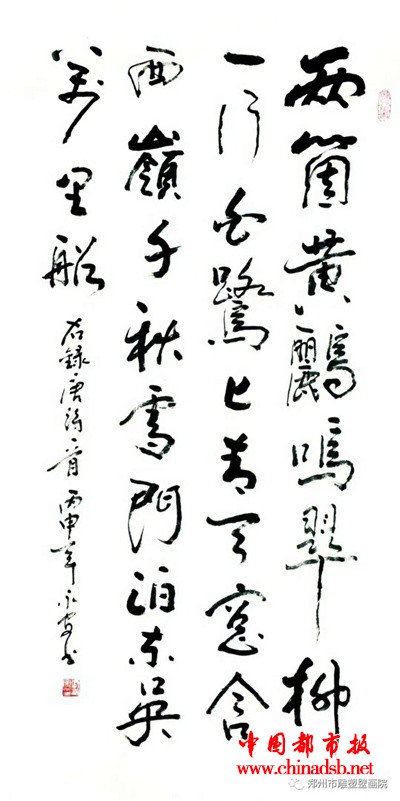 兩箇黃鸝鳴翠柳
一行白鷺上青天窓含
西嶺千秋雪門泊東吳
萬里船
右錄唐詩一首丙申年永安书
中国都市报
www.chinadsb.net
郑州市雕塑壁画院